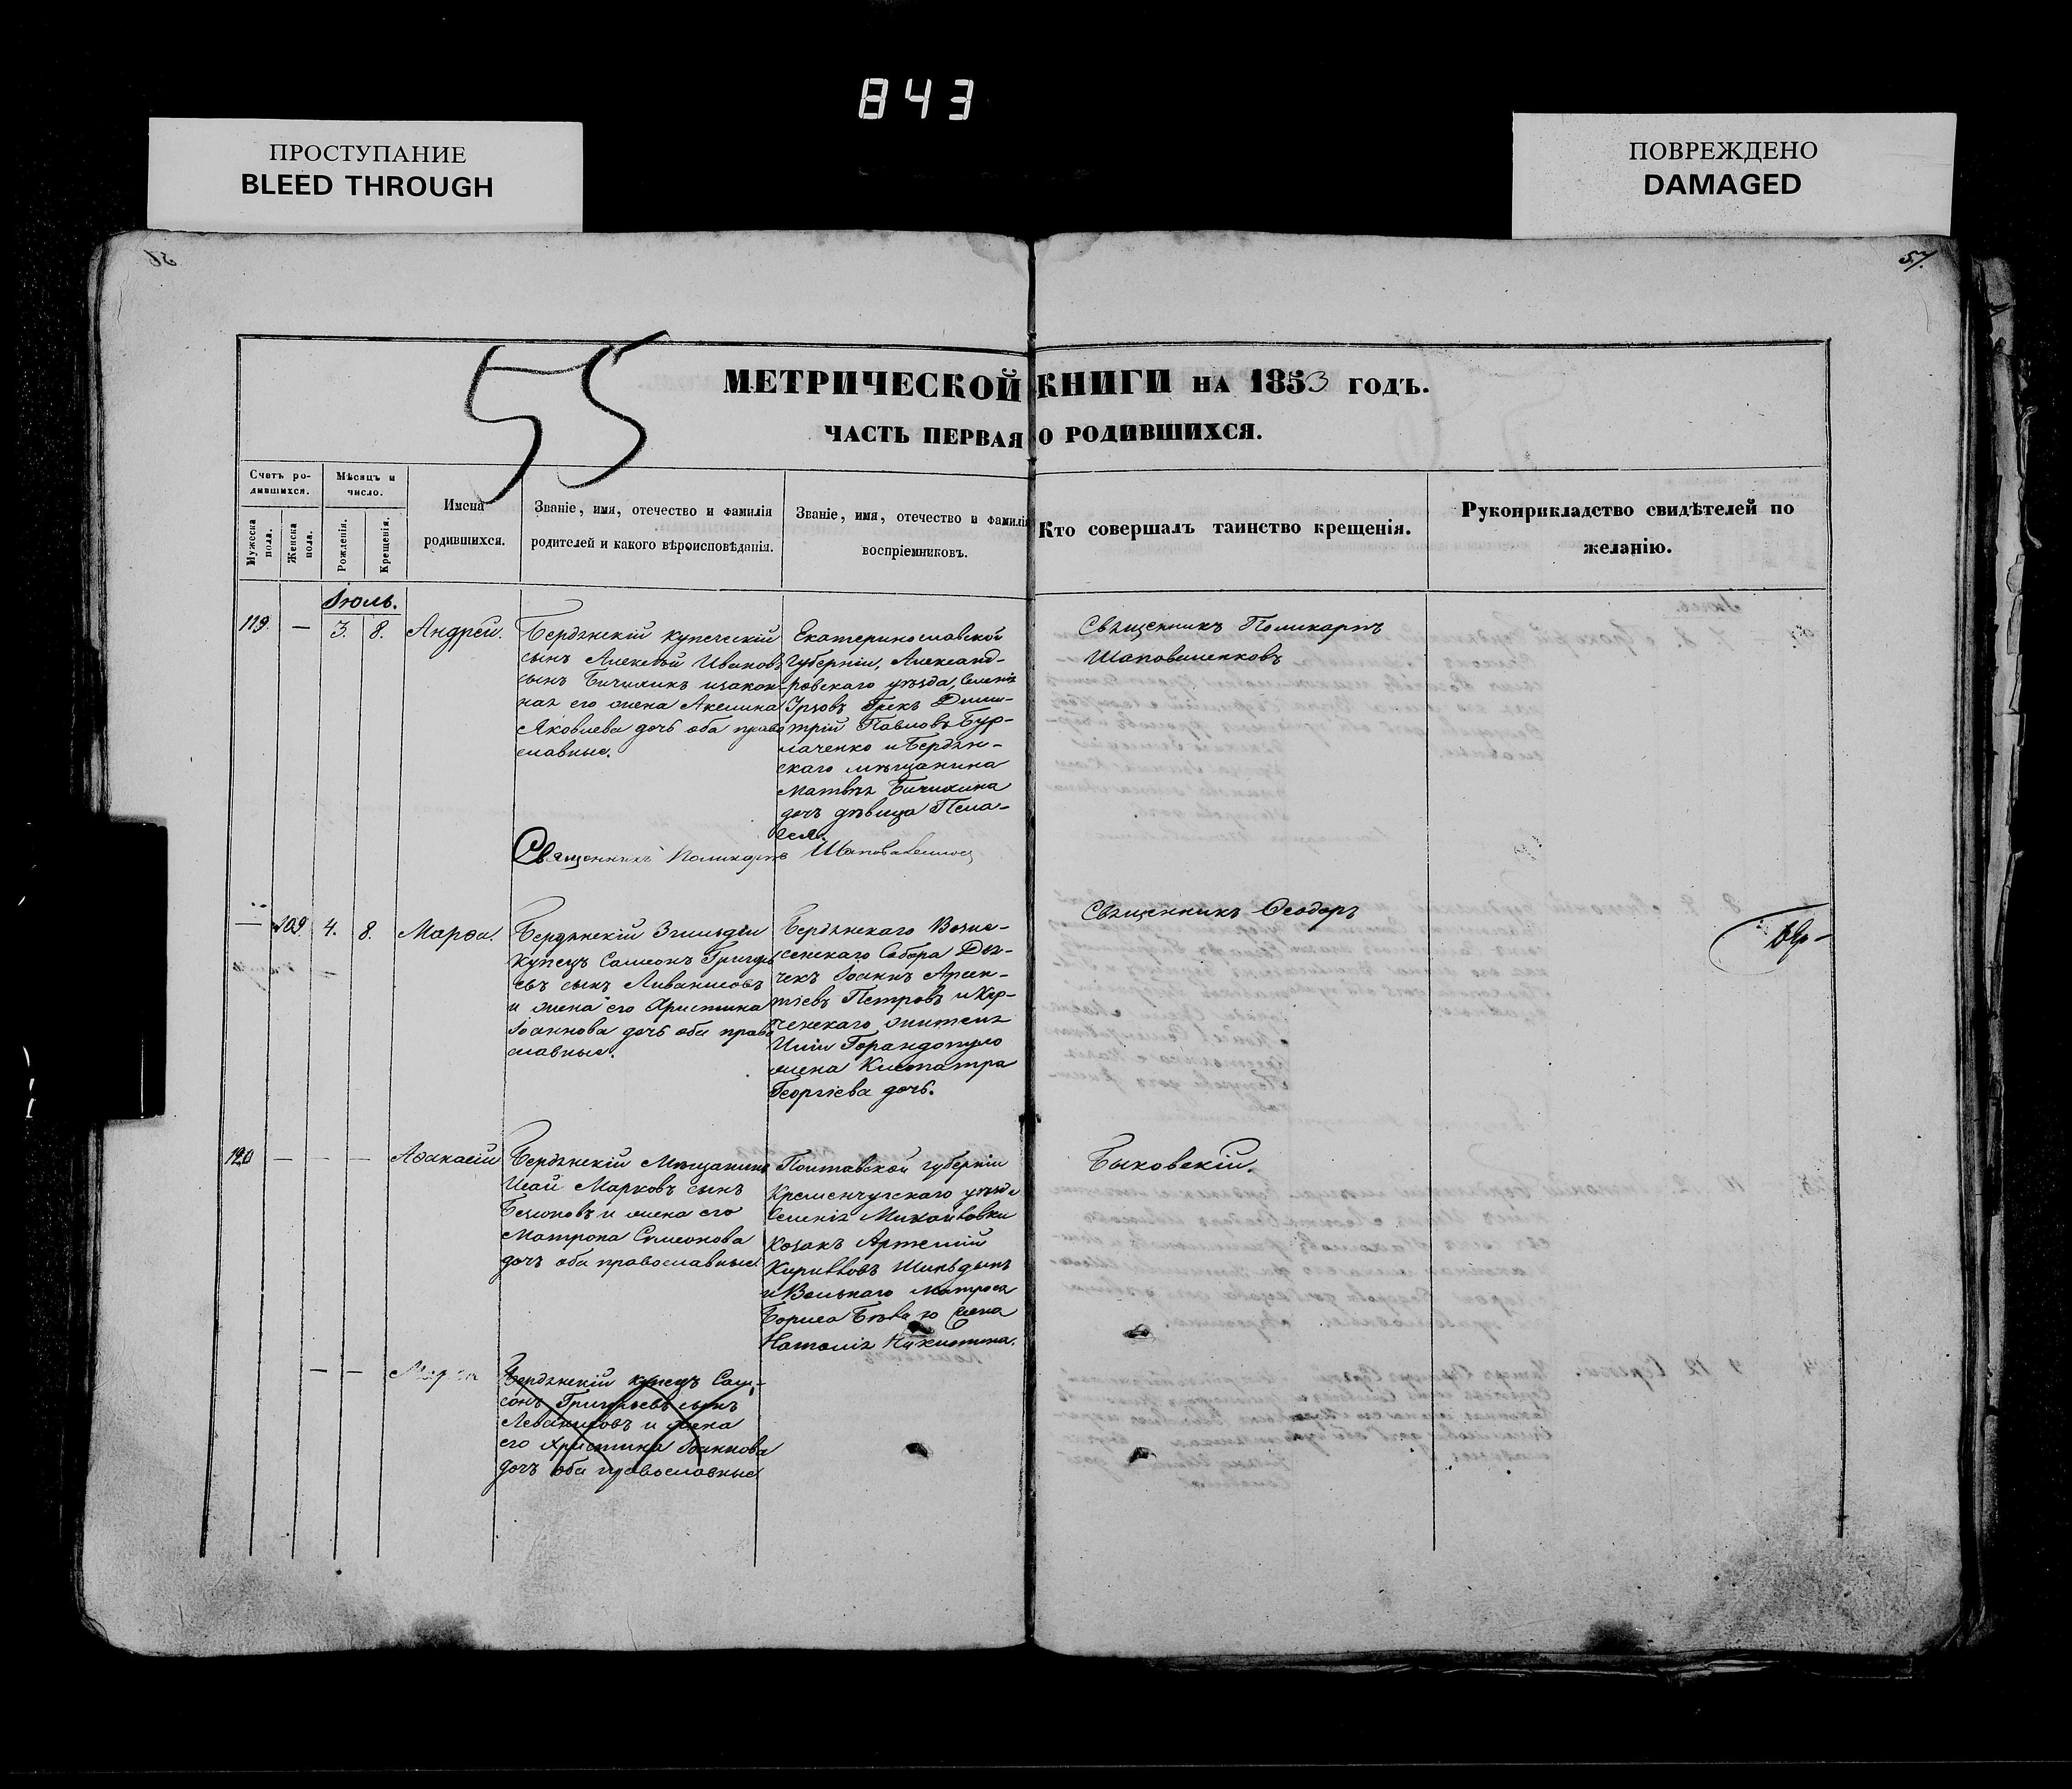 843
ПРОСТУПАНИЕ
BLEED THROUGH
ПОВРЕЖДЕНО
DAMAGED
57.
55
МЕТРИЧЕСКОЙ КНИГИ НА 1853 ГОДЪ.
ЧАСТЬ ПЕРВАЯ О РОДИВШИХСЯ.
Счетъ ро-
дившихся.
Мужеска
пола.
Женска
пола.
Мѣсяцъ и
число.
Рожденія.
Крещенія.
Имена
родившихся.
Званіе, имя, отечество и фамилія
родителей и какого вѣроисповѣданія.
Званіе, имя, отечество и фамилія
воспріемниковъ.
Кто совершалъ таинство крещенія.
Рукоприкладство свидѣтелей по
желанію.
Іюль.
119. — 3. 8. Андрей.
Бердянскій купеческій
сынъ Алексѣй Ивановъ
сынъ Бичихинъ изакон-
ная его жена Акилина
Яковлева дочь оба право
славные.
Екатеринославской
Губерніи, Александ-
ровскаго уѣзда, Селенія
Урзовъ Грекъ Дими-
трій Павловъ Бур-
лаченко и Бердян-
скаго мѣщанина
Матвѣя Бичихина
дочь дѣвица Пела-
гея.
Священникъ Поликарпъ
Шаповаленковъ
Священникъ Поликарпъ
— 109. 4. 8. Марѳа.
Бердянскій 3 гильдіи
Купецъ Самсонъ Григорь
евъ сынъ Ливанисовъ
и жена его Христина
Іоаннова дочь оба право
славные.
Бердянскаго Возне-
сенскаго Собора Дья-
чекъ Іоаннъ Арсен-
тіевъ Петровъ и Кер-
ченскаго жителя
Иліи
жена Клеопатра
Георгіева дочь.
Священникъ Ѳеодоръ
120 — — — Аѳанасій
Бердянскій Мѣщанинъ
Исай Марковъ сынъ
и жена его
Матрона Симеонова
дочь оба православные
Полтавской губерніи
Кременчугскаго уѣзда
Селенія Михайловки
Козакъ Артемій
Кирилловъ
и Вольнаго матроса
Бориса жена
Наталія Никитина.
Быковскій.
— —
Бердянскій купецъ Сам-
сонъ Григорьевъ сынъ
Леванисовъ и жена
его Христина Іоаннова
дочь оба православные